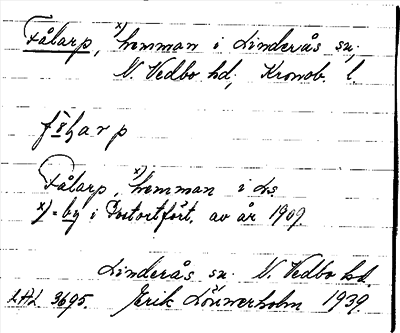 Fålarp, x) hemman i Linderås sn,
N. Vedbo hd, Kronob. l.
Fålarp, x) hemman i Ls.
x) = by i Postortfört. av år 1909.
Linderås sn. N. Vedbo hd.
LAL 3695. Jerik Lönnerholm 1939.